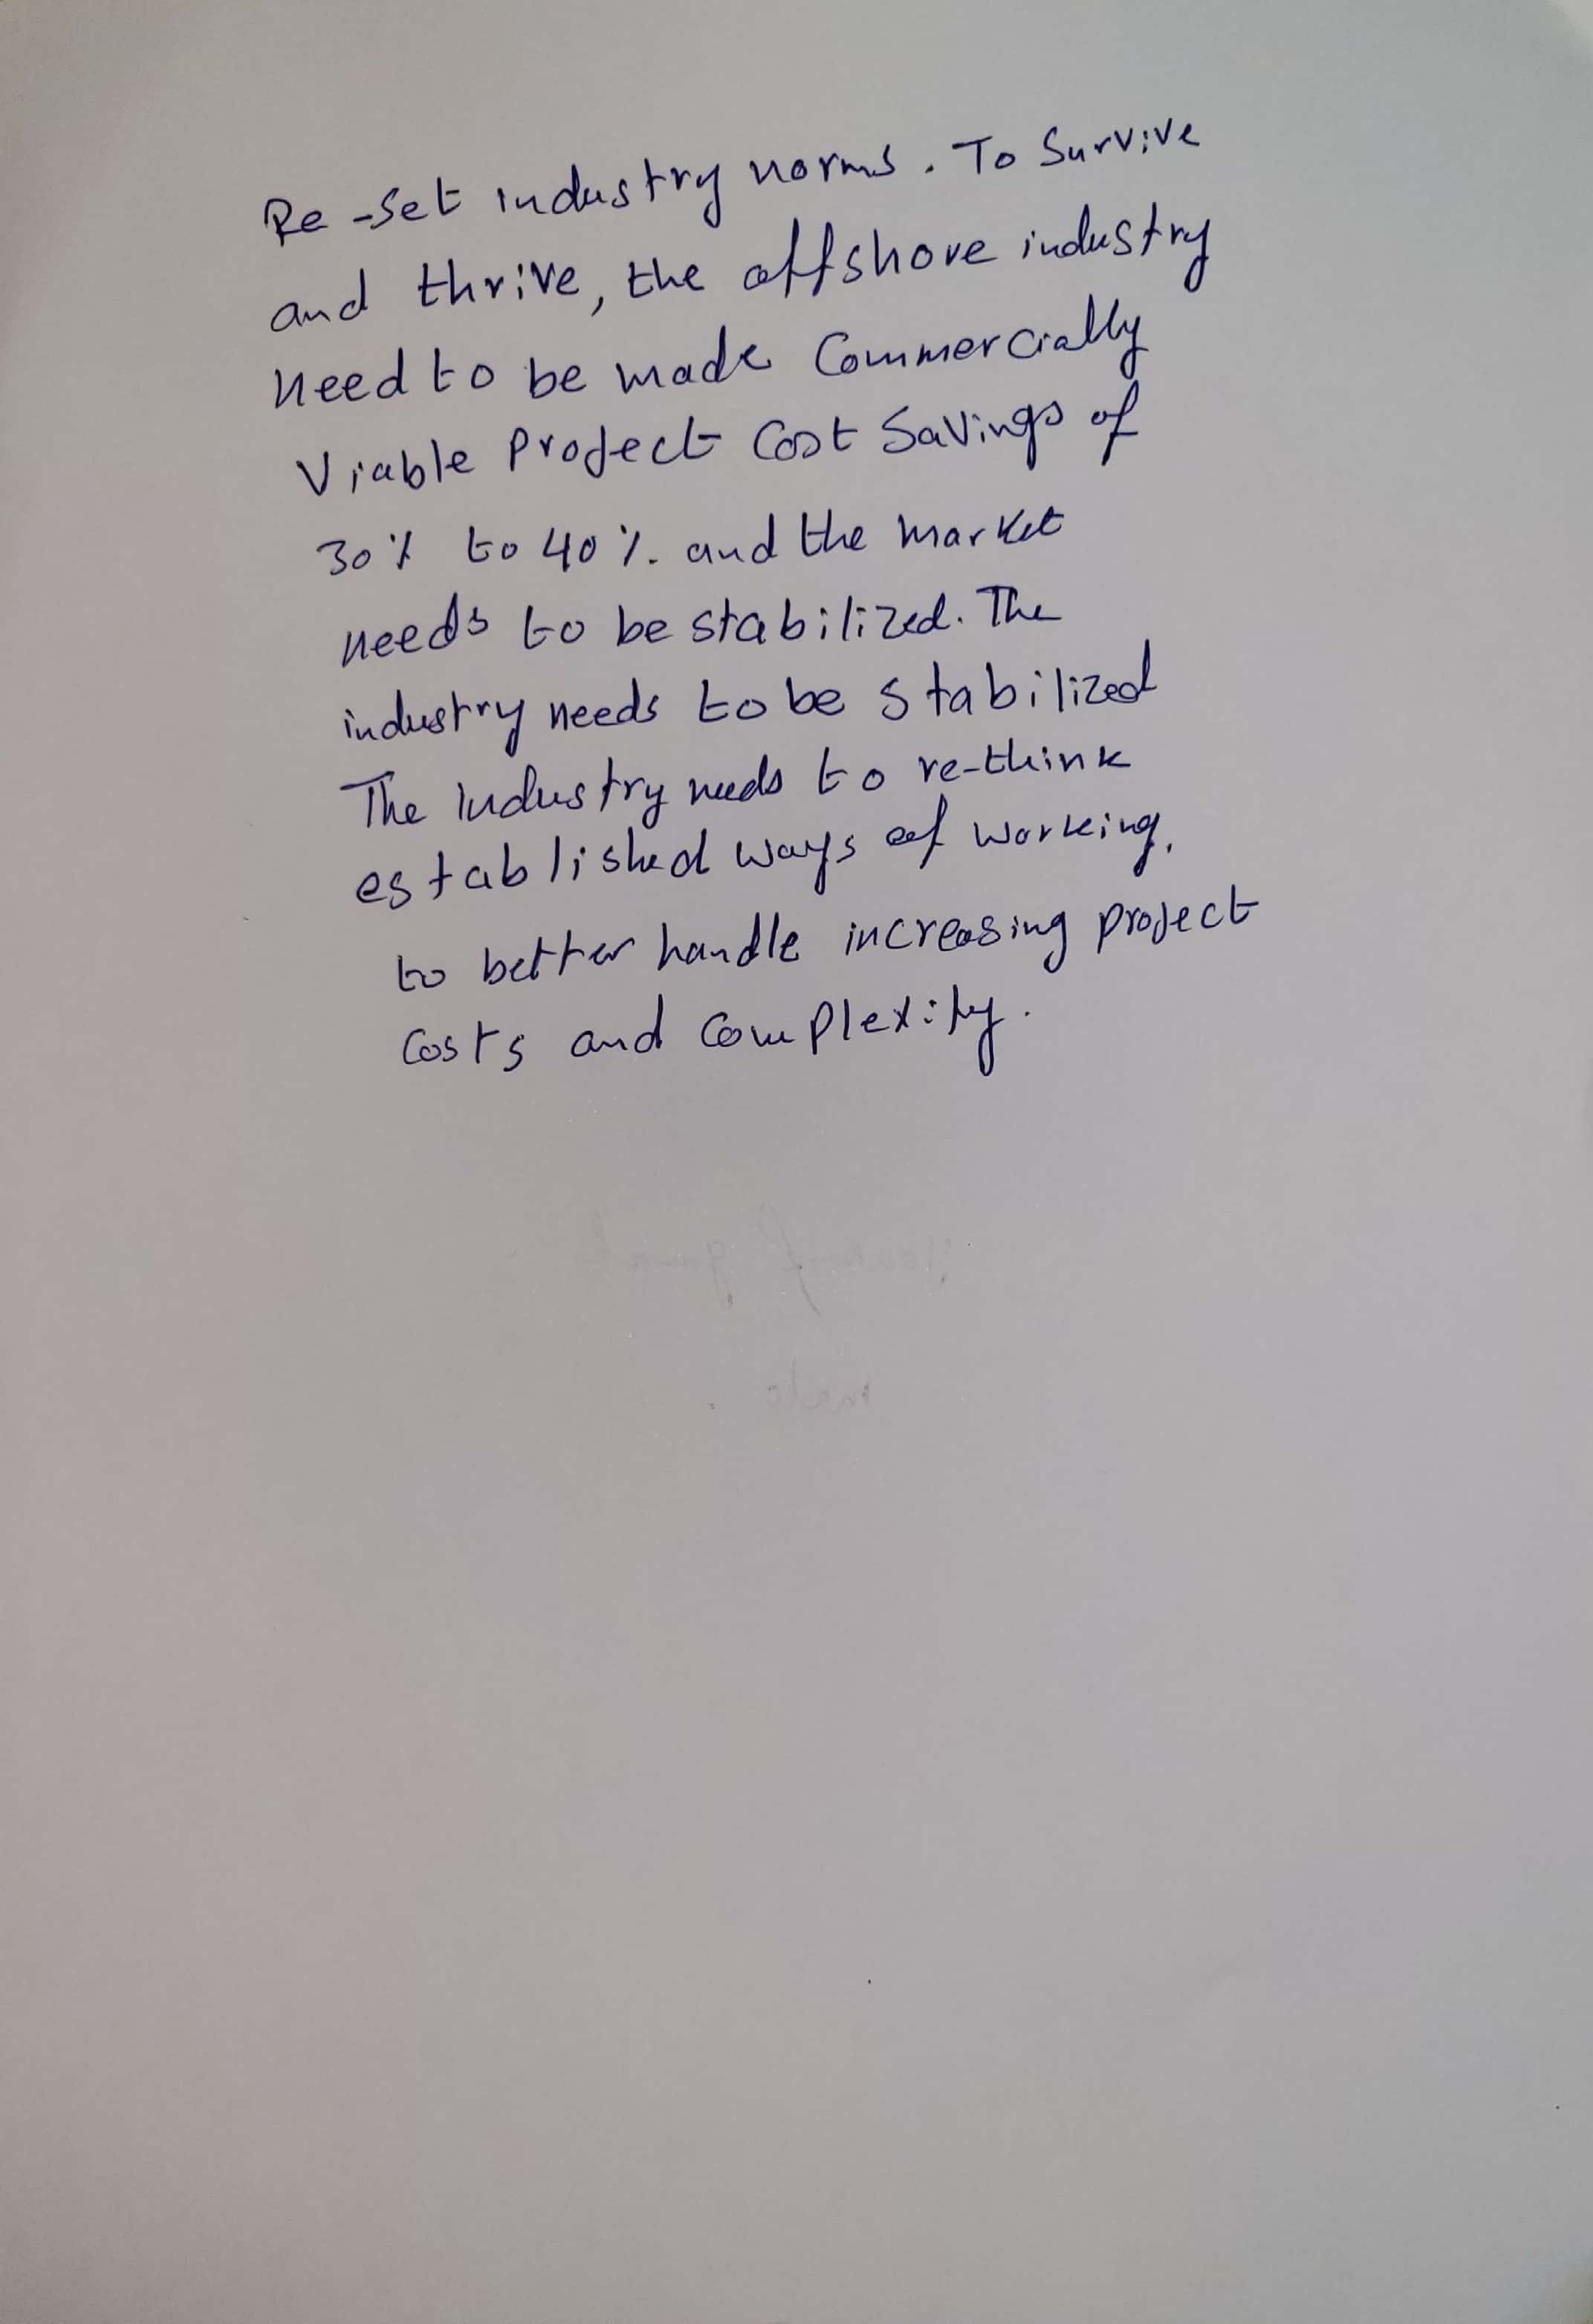 Re-set industry norms. To Survive
and thrive, the offshore industry
need to be made Commercially
Viable Project Cost Savings of
30% to 40%. and the market
needs to be stabilized. The
industry needs to be stabilized
The Industry needs to re-think
established ways of working,
to better handle increasing project
Costs and Complexity.